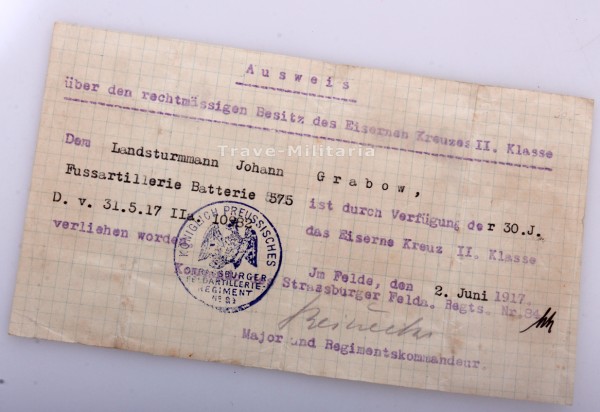 Ausweis
über den rechtmässigen Besitz des Eisernen Kreuzes II. Klasse
Trave-Militaria
Dem Landsturmmann Johann Grabow,
Fussartillerie Batterie 575 ist durch Verfügung der 30.J.
D. v. 31.5.17 IIa. 10962 das Eiserne Kreuz II. Klasse
verliehen worden
Jm Felde, den 2. Juni 1917.
Strassburger Felda. Regts. Nr.84
Major und Regimentskommandeur.
KÖNIGLICH PREUSSISCHES
STRASSBURGER
FELDARTILLERIE-
REGIMENT